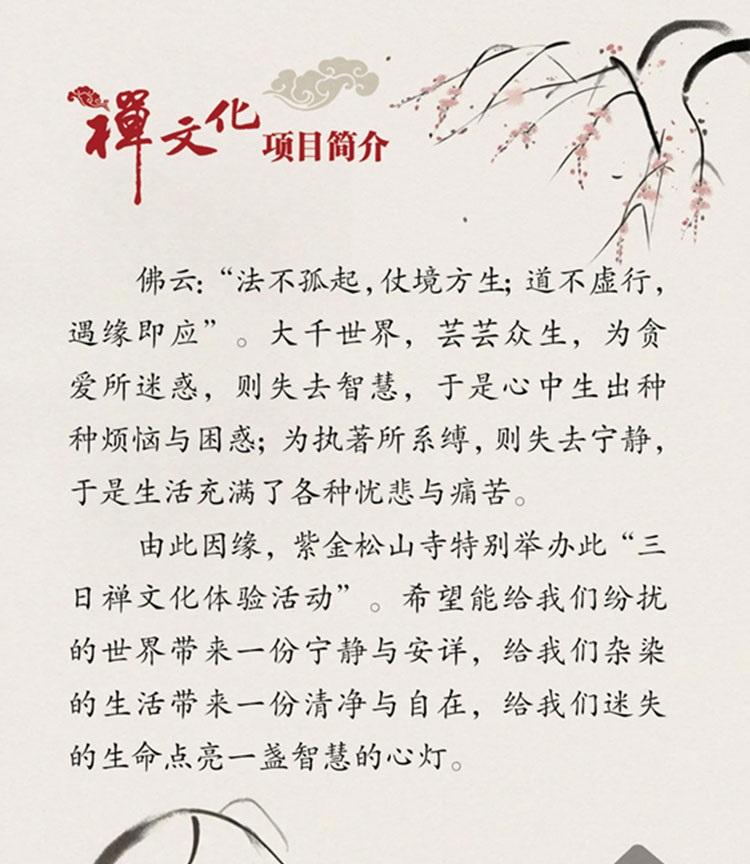 禅文化项目简介
佛云：“法不孤起，仗境方生；道不虚行，
遇缘即应”。大千世界，芸芸众生，为贪
爱所迷惑，则失去智慧，于是心中生出种
种烦恼与困惑；为执著所系缚，则失去宁静，
于是生活充满了各种忧悲与痛苦。
由此因缘，紫金松山寺特别举办此“三
日禅文化体验活动”。希望能给我们纷扰
的世界带来一份宁静与安详，给我们杂染
的生活带来一份清净与自在，给我们迷失
的生命点亮一盏智慧的心灯。